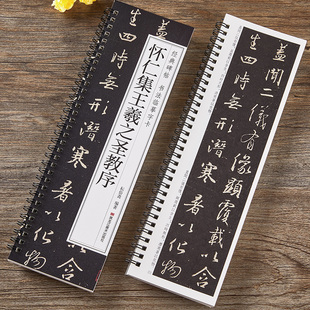 经典碑帖 书法临摹字卡
怀仁集王羲之圣教序
盖
以含
生四時無形潛寒暑以化物
盖聞二儀有像顯覆載以含
生四時無形潛寒暑以化物